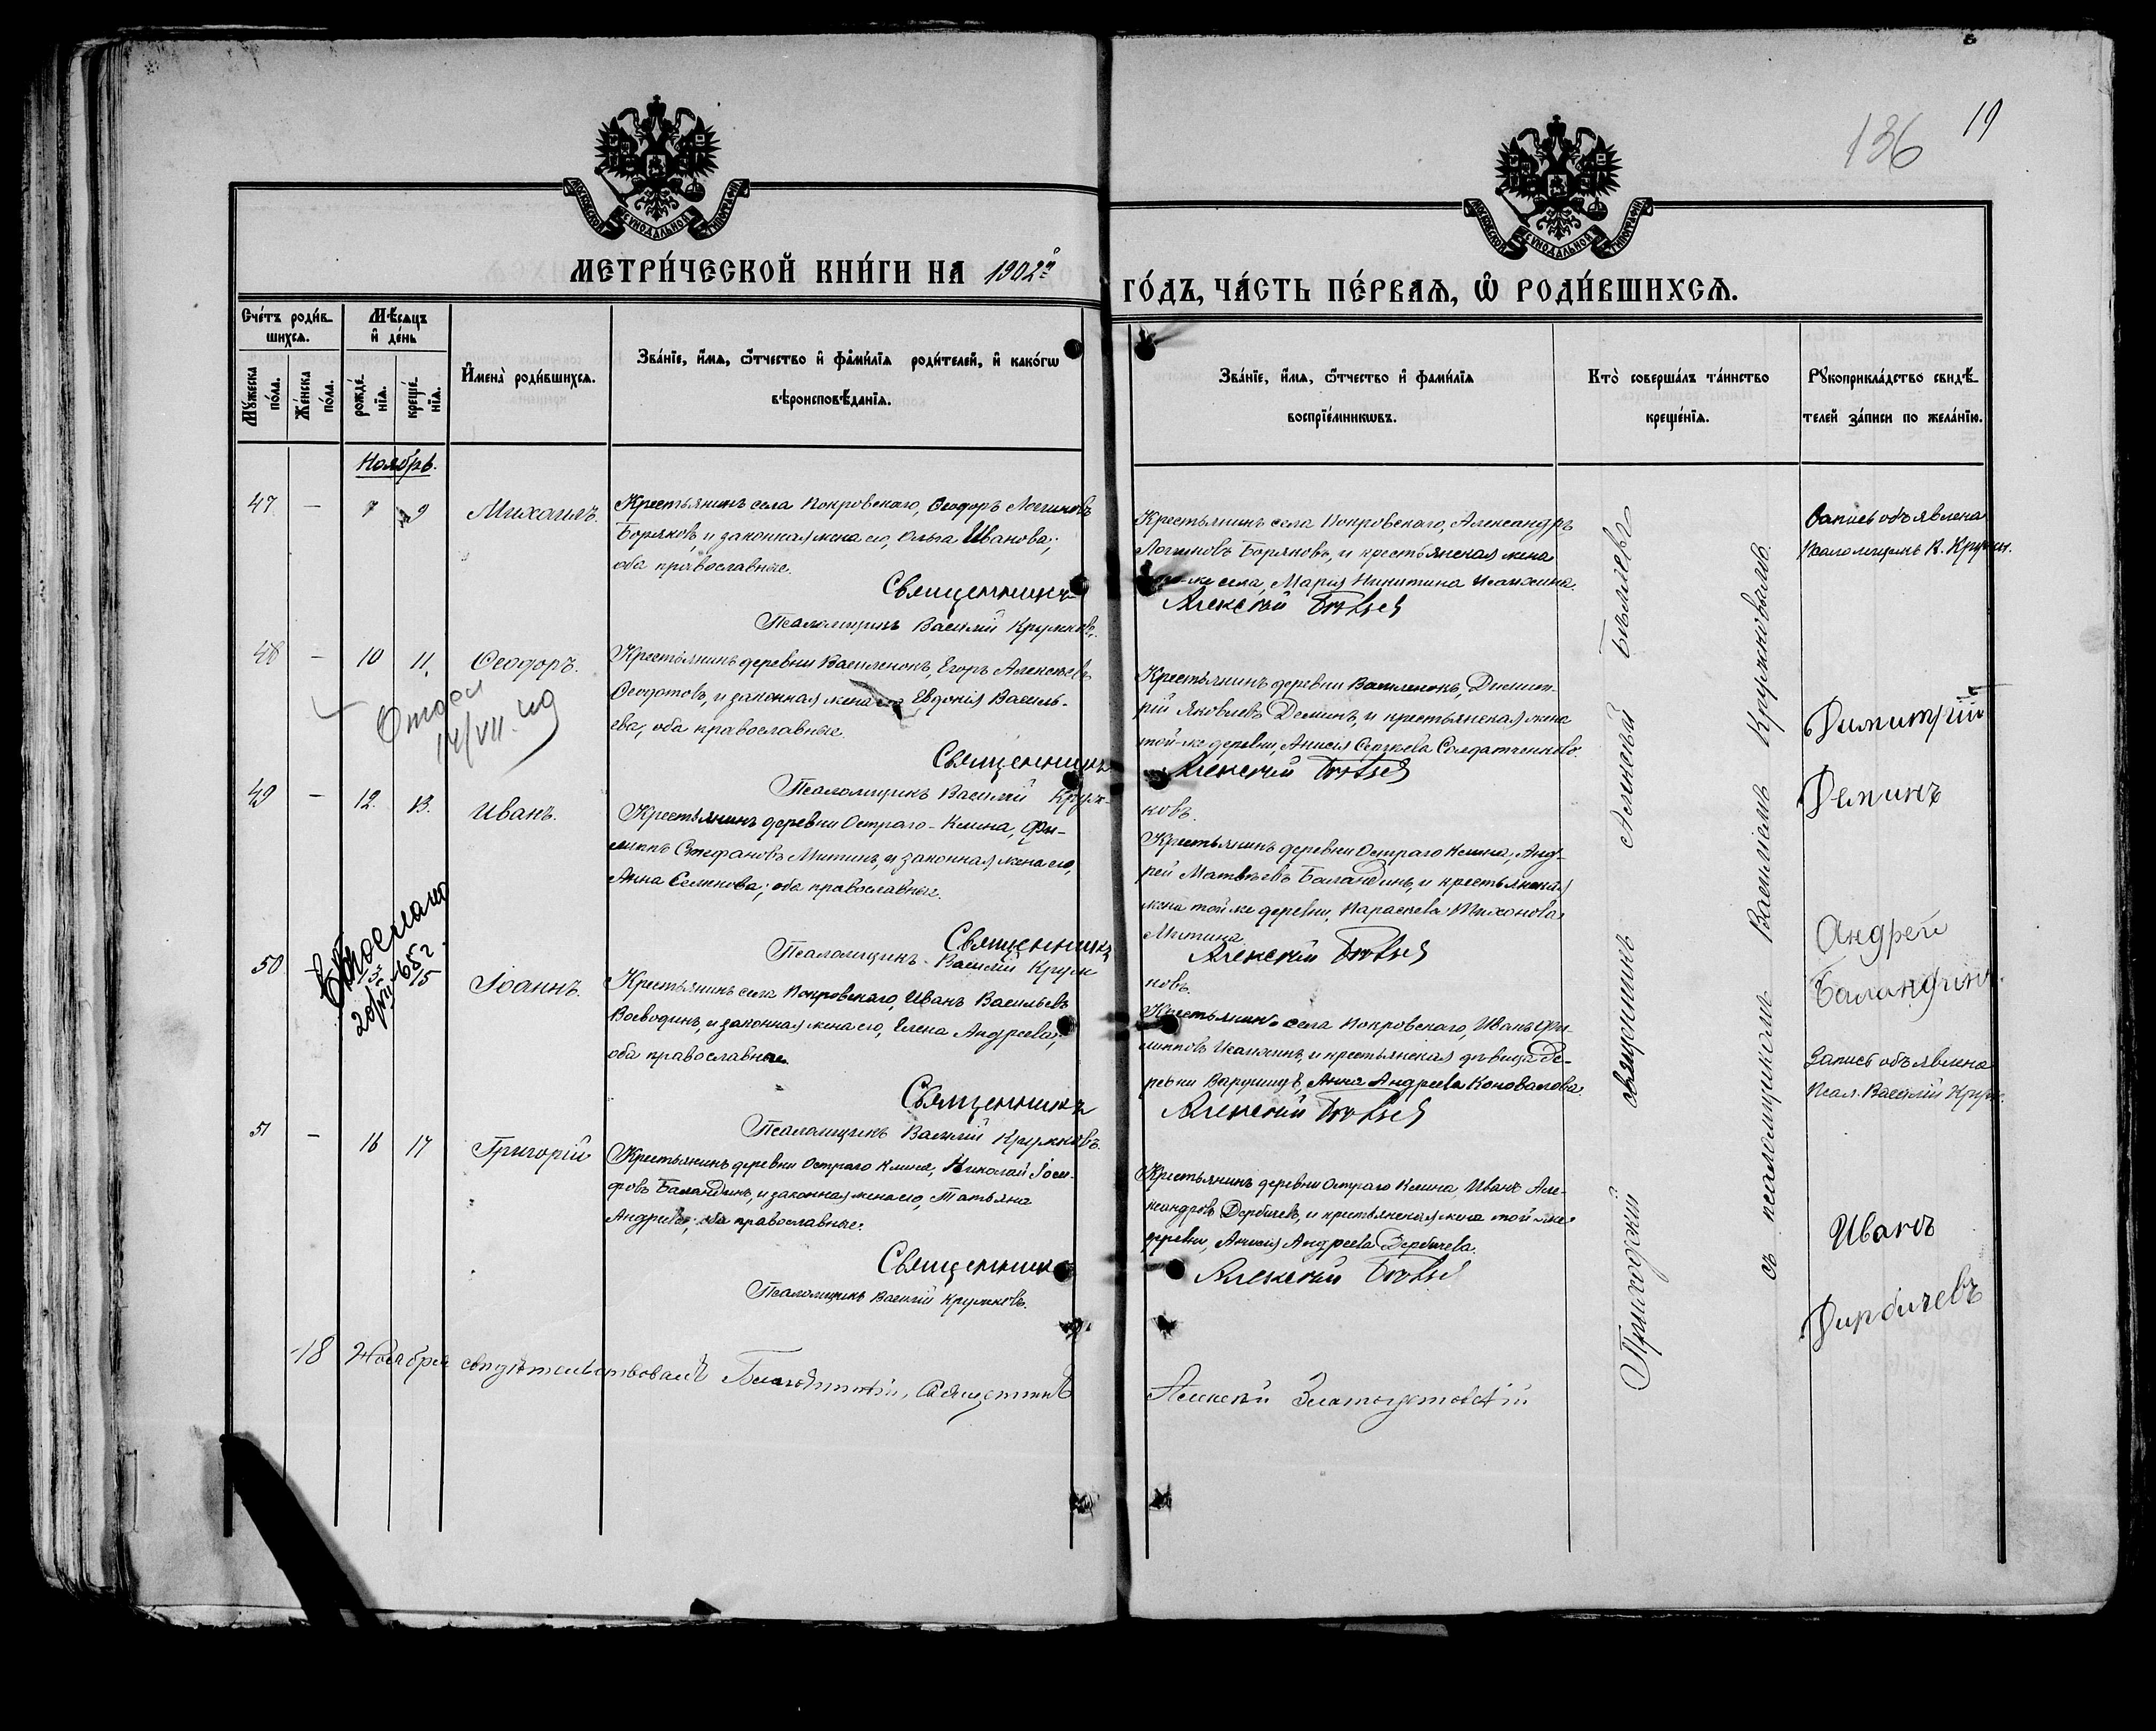 136
19
МОСКОВСКОЙ СѴНОДАЛЬНОЙ ТИПОГРАФІИ
МОСКОВСКОЙ СѴНОДАЛЬНОЙ ТИПОГРАФІИ
МЕТРИ́ЧЕСКОЙ КНИ́ГИ НА 1902й
ГО́ДЪ, ЧА́СТЬ ПЕ́РВАѦ, Ѡ РОДИ́ВШИХСѦ.
Сче́тъ роди́в-
шихся.
Мѣ́сяцъ
и де́нь
Мꙋ́жеска
по́ла.
Же́нска
по́ла.
рожде́-
нїя.
креще́-
нїя.
И҆мена̀ роди́вшихся.
Зва́нїе, и҆́мя, ѻ҆́тчество и҆ фами́лїя роди́телей, и҆ како́гѡ
вѣроисповѣ́данїя.
Зва́нїе, и҆́мя, ѻ҆́тчество и҆ фами́лїя
воспрїе́мникѡвъ.
Кто̀ соверша́лъ та́инство
креще́нїя.
Рꙋкоприкла́дство свидѣ́-
телей за́писи по жела́нїю.
Ноябрь.
47 – 7 9 Михаилъ.
Крестьянинъ села Покровскаго, Ѳеодоръ Логиновъ
Боряковъ, и законная жена его, Ольга Иванова;
оба православные.
Священникъ
Псаломщикъ Василій Кружковъ.
Крестьянинъ села Покровскаго, Александръ
Логиновъ Боряковъ, и крестьянская жена
того-же села, Марія Никитина Исанина.
Алексій Бѣляев
Запись объявлена
Псаломщикъ В. Кружк.
48 – 10 11. Ѳеодоръ.
Отосл
14/VII.
Крестьянинъ деревни Василенокъ, Егоръ Алексѣевъ
Ѳеодотовъ, и законная жена его Евдокія Василь-
ева, оба православные.
Священникъ
Псаломщикъ Василій Круж-
Крестьянинъ деревни Василенокъ, Димит-
рій Яковлевъ Деминъ, и крестьянская жена
той-же деревни, Анисія Сергѣева Солдатченкова.
Алексій Бѣляев
ковъ.
Димитрій
Деминъ
49 – 12. 13. Иванъ.
Крестьянинъ деревни Остраго-Клина, Фи-
липпъ Стефановъ Митинъ, и законная жена его,
Анна Семенова; оба православные.
Священникъ
Псаломщикъ Василій Круж
Крестьянинъ деревни Остраго Клина, Анд-
рей Матвѣевъ Баландинъ, и крестьянская
жена той же деревни, Параскева Тихонова
Митина
Алексій Бѣляев
ковъ.
Андрей
Баландинъ.
50 15 Іоаннъ.
65 г.
Крестьянинъ села Покровскаго, Иванъ Васильевъ
Воеводинъ, и законная жена его, Елена Андреева;
оба православные.
Священникъ
Псаломщикъ Василій Кружковъ.
Крестьянинъ села Покровскаго, Иванъ Фи-
липповъ Исанинъ, и крестьянская дѣвица де-
ревни Варушицъ, Анна Андреева Коновалова.
Алексій Бѣляев
Запись объявлена
Псал. Василій Круж.
51 – 16 17 Григорій
Крестьянинъ деревни Остраго Клина, Николай Іоси-
фовъ Баландинъ, и законная жена его, Татьяна
Андреева; оба православные.
Священникъ
Псаломщикъ Василій Кружковъ.
Крестьянинъ деревни Остраго Клина, Иванъ Але-
ксандровъ Дербичевъ, и крестьянская жена той же
деревни, Анисія Андреева Дербичева.
Алексій Бѣляев
Иванъ
Дирбичевъ
Приходскій священникъ Алексій Бѣляевъ
съ псаломщикомъ Василіемъ Кружковымъ.
18 Ноября свидѣтельствовалъ Благочинный, Священникъ
Алексій Златоустовскій